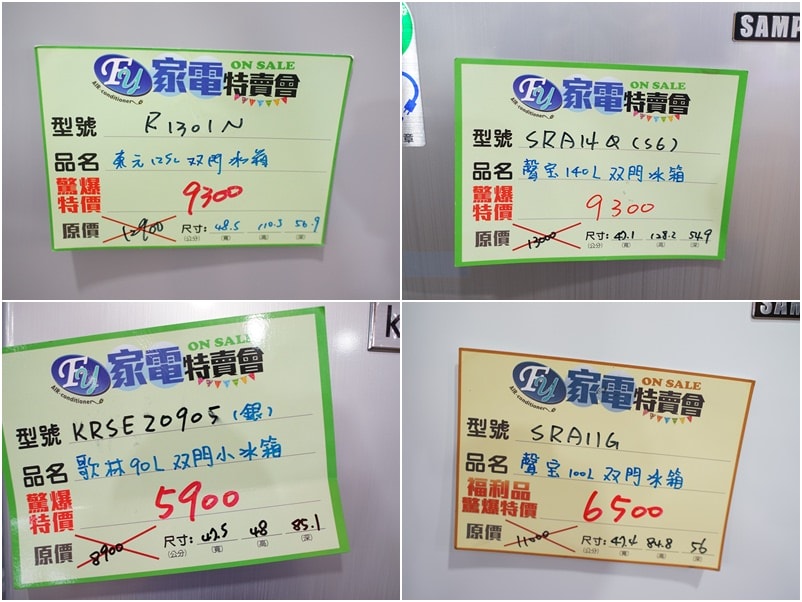 Fy 家電特賣會 ON SALE
AIR-conditioner
型號 R1301N
品名 東元125L 双門冰箱
驚爆特價 9300
原價 12900 尺寸:(公分) 48.5(寬) 110.3(高) 56.9(深)
SAMP
章
Fy 家電特賣會 ON SALE
AIR-conditioner
型號 SRA14Q(S6)
品名 聲宝140L双門冰箱
驚爆特價 9300
原價 13000 尺寸:(公分) 47.1(寬) 128.2(高) 54.9(深)
K
Fy 家電特賣會 ON SALE
AIR-conditioner
型號 KRSE20905(銀)
品名 歌林90L双門小冰箱
驚爆特價 5900
原價 8900 尺寸:(公分) 47.5(寬) 48(高) 85.1(深)
SAM
Fy 家電特賣會 ON SALE
AIR-conditioner
型號 SRA11G
品名 聲宝100L双門冰箱
福利品
驚爆特價 6500
原價 11000 尺寸:(公分) 47.4(寬) 84.8(高) 56(深)